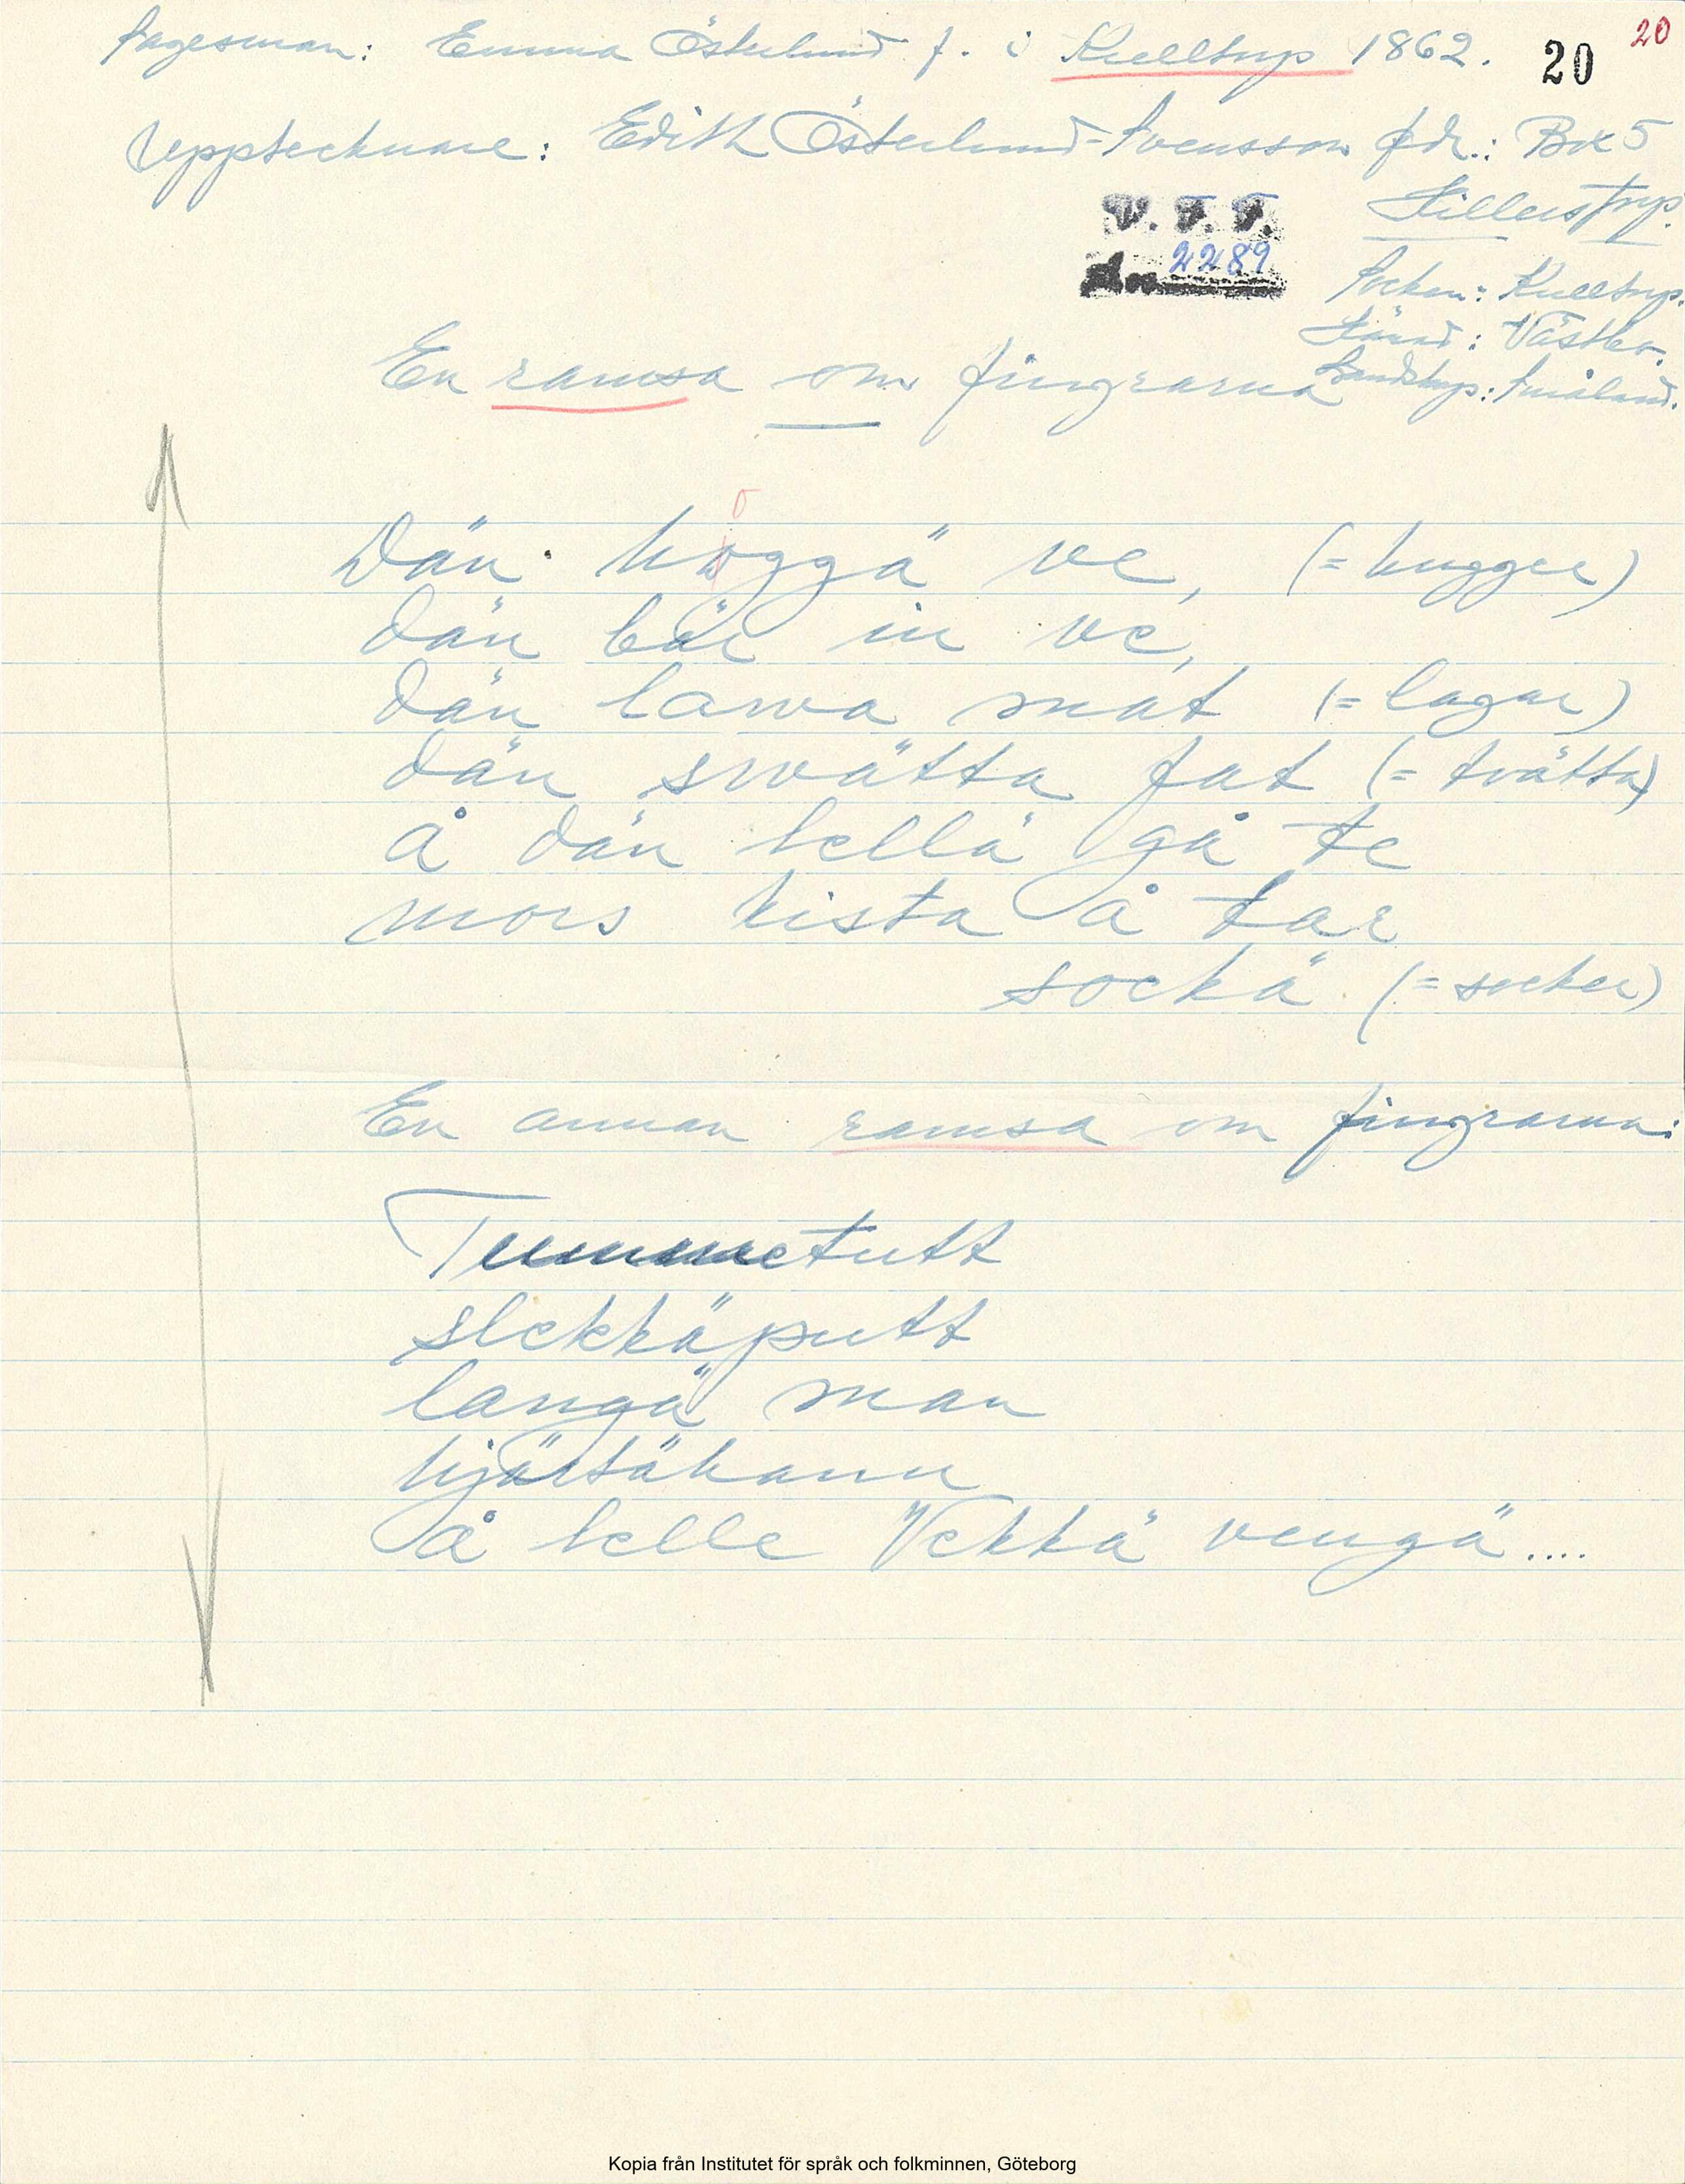 Sagesman: Emma Österlund f. i Kulltorp 1862. 20 20
Upptecknare: Edith Österlund-Svensson adr.: Box 5
Hillerstorp.
V. F. F.
2289
Socken: Kulltorp.
Härad: Västbo.
Landskap: Småland.
En ramsa om fingrarna
Dän hoggä ve, (= hugger)
dän bär in ve,
dän lawa mat (= lagar)
dän swätta fat (= tvätta)
å dän lellä gå te
mors kista å tar
sockä (= socker)
En annan ramsa om fingrarna:
Tummetutt
slekkäputt
langä man
hjärtähann
å lelle Vekkä vengä....
Kopia från Institutet för språk och folkminnen, Göteborg